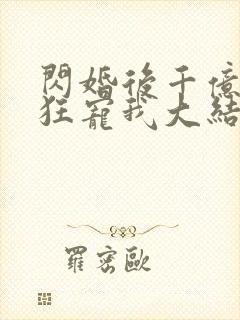 閃婚後千億
狂寵我大結
羅密歐